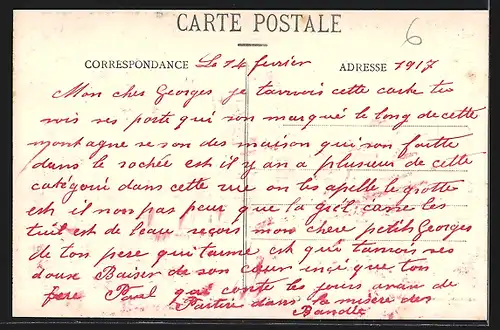 CARTE POSTALE
6
CORRESPONDANCE Le 14 fevrier ADRESSE 1917
Mon cher Georges je tanvois cette carte tu
vois ses porte qui son marqué le long de cette
montagne se son des maison qui son faitte
dans le rochée est il y an a plusieur de cette
catégorie dans cette rue on les apelle le grotte
est il non pas peur que la grél casse les
tuil est de leau reçois mon chere petit Georges
de ton pere qui taime est qui tanvois ses
doux Baiser de son cœur que ton
pere Paul qui conte les jours avan de
Partir dans la misère des